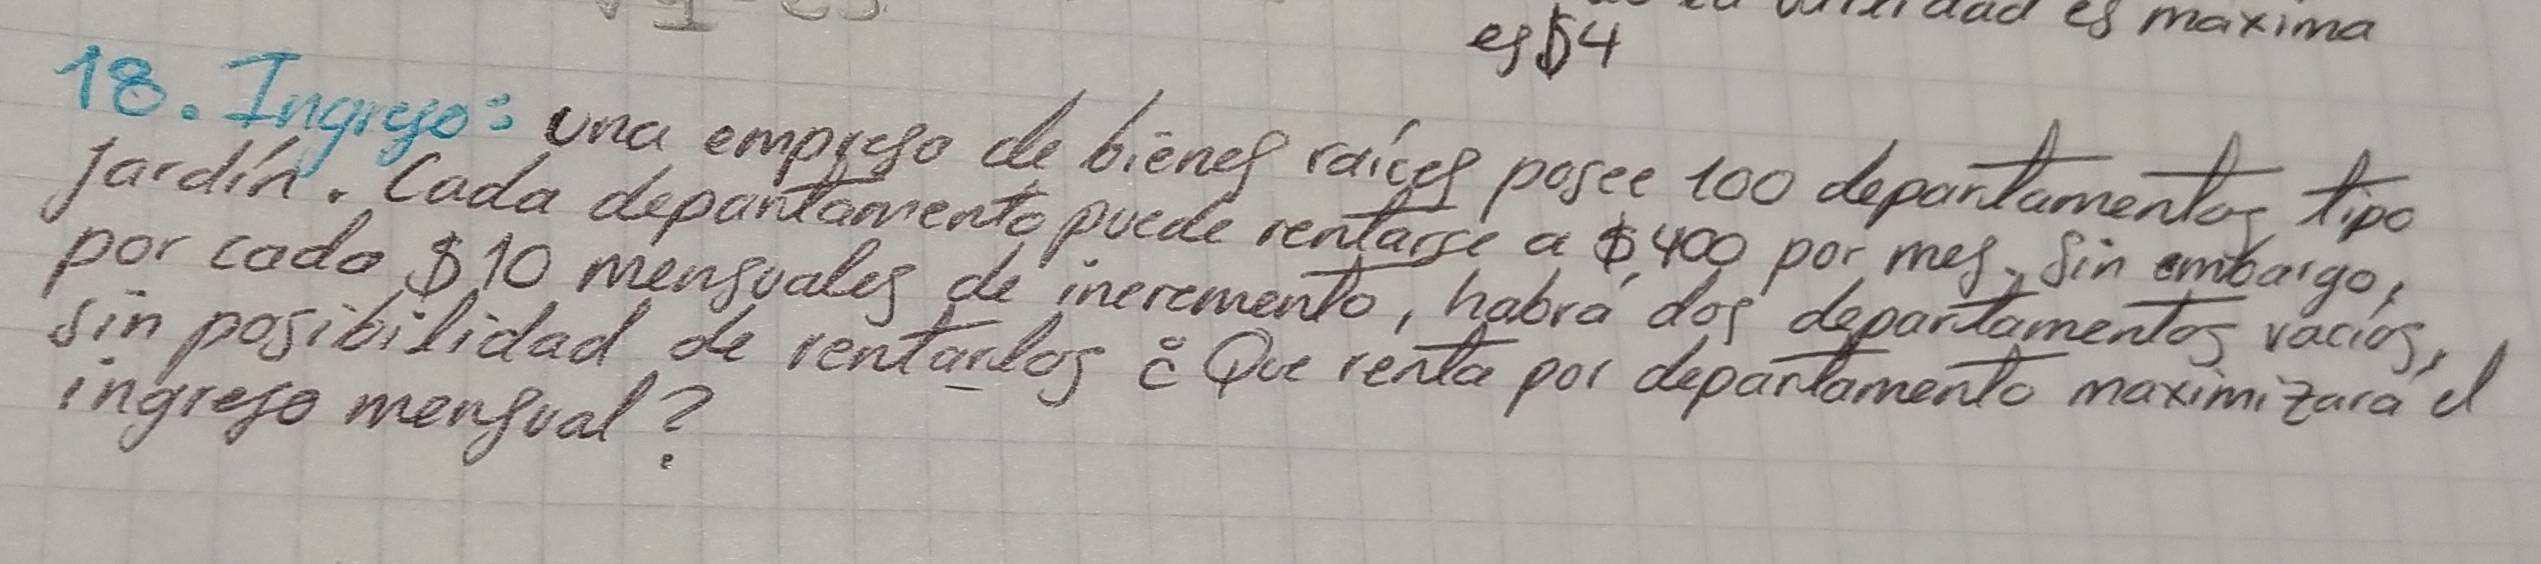 es maxima
es $4
18. Ingreso: una empreso de bienes raíces posee 100 departamentos tipo
jardín. Cada departamento puede rentarse a $400 por mes, sin embargo,
por cado $10 mensuales de incremento, habrá dos departamentos vacios,
sin posibilidad de rentarlos ¿Que renta por departamento maximizará el
ingreso mensual?